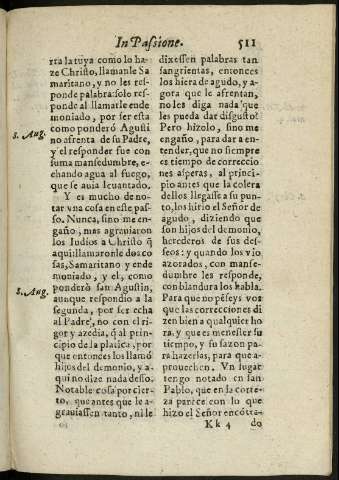 In Passione. 511
rra la tuya como lo ha-
ze Christo, llamanle Sa
maritano, y no les res
ponde palabra: solo res-
ponde al llamarle ende
moniado, por ser esta
S. Aug.
como ponderó Agusti
no afrenta de su Padre,
y el responder fue con
suma mansedumbre, e-
chando agua al fuego,
que se auia leuantado.
Y es mucho de no-
tar vna cosa en este pas-
so. Nunca, sino me en-
gaño, mas agrauiaron
los Iudios a Christo q̃
aqui: llamaronle dos co
sas, Samaritano y ende
moniado, y el, como
S. Aug.
ponderò san Agustin,
aunque respondio a la
segunda, por ser echa
al Padre, no con el ri-
gor y azedia, q̃ al prin-
cipio de la platica, por
que entonces los llamó
hijos del demonio, y a-
qui no dize nada desso.
Notable cosa por cier-
to, que antes que le a-
grauiassen tanto, ni le
dixessen palabras tan
sangrientas, entonces
los hiera de agudo, y a-
gora que le afrentan,
no les diga nada que
les pueda dar disgusto?
Pero hizolo, sino me
engaño, para dar a en-
tender, que no siempre
es tiempo de correccio
nes asperas, al princi-
pio antes que la colera
dellos llegasse a su pun-
to, los hirio el Señor de
agudo, diziendo que
son hijos del demonio,
herederos de sus des-
seos: y quando los vio
azorados, con manse-
dumbre les responde,
con blandura los habla.
Para que no pèseys vos
que las correcciones di
zen bien a qualquier ho
ra, y que es menester su
tiempo, y su sazon pa-
ra hazerlas, para que a-
prouechen. Vn lugar
tengo notado en san
Pablo, que en la corte-
za parece con lo que
hizo el Señor encõtra-
Kk 4 do